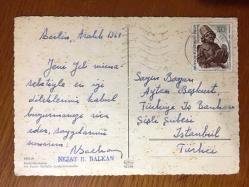 Berlin, Aralık 1961
Yeni Yıl müna-
sebetiyle en iyi
dileklerimi kabul
buyurmanızı rica
eder, saygılarımı
sunarım.
NEJAT B. BALKAN
Sayın Bayan
Aytan Başkurt
Türkiye İş Bankası
Şişli Şubesi
Istanbul
Türkei